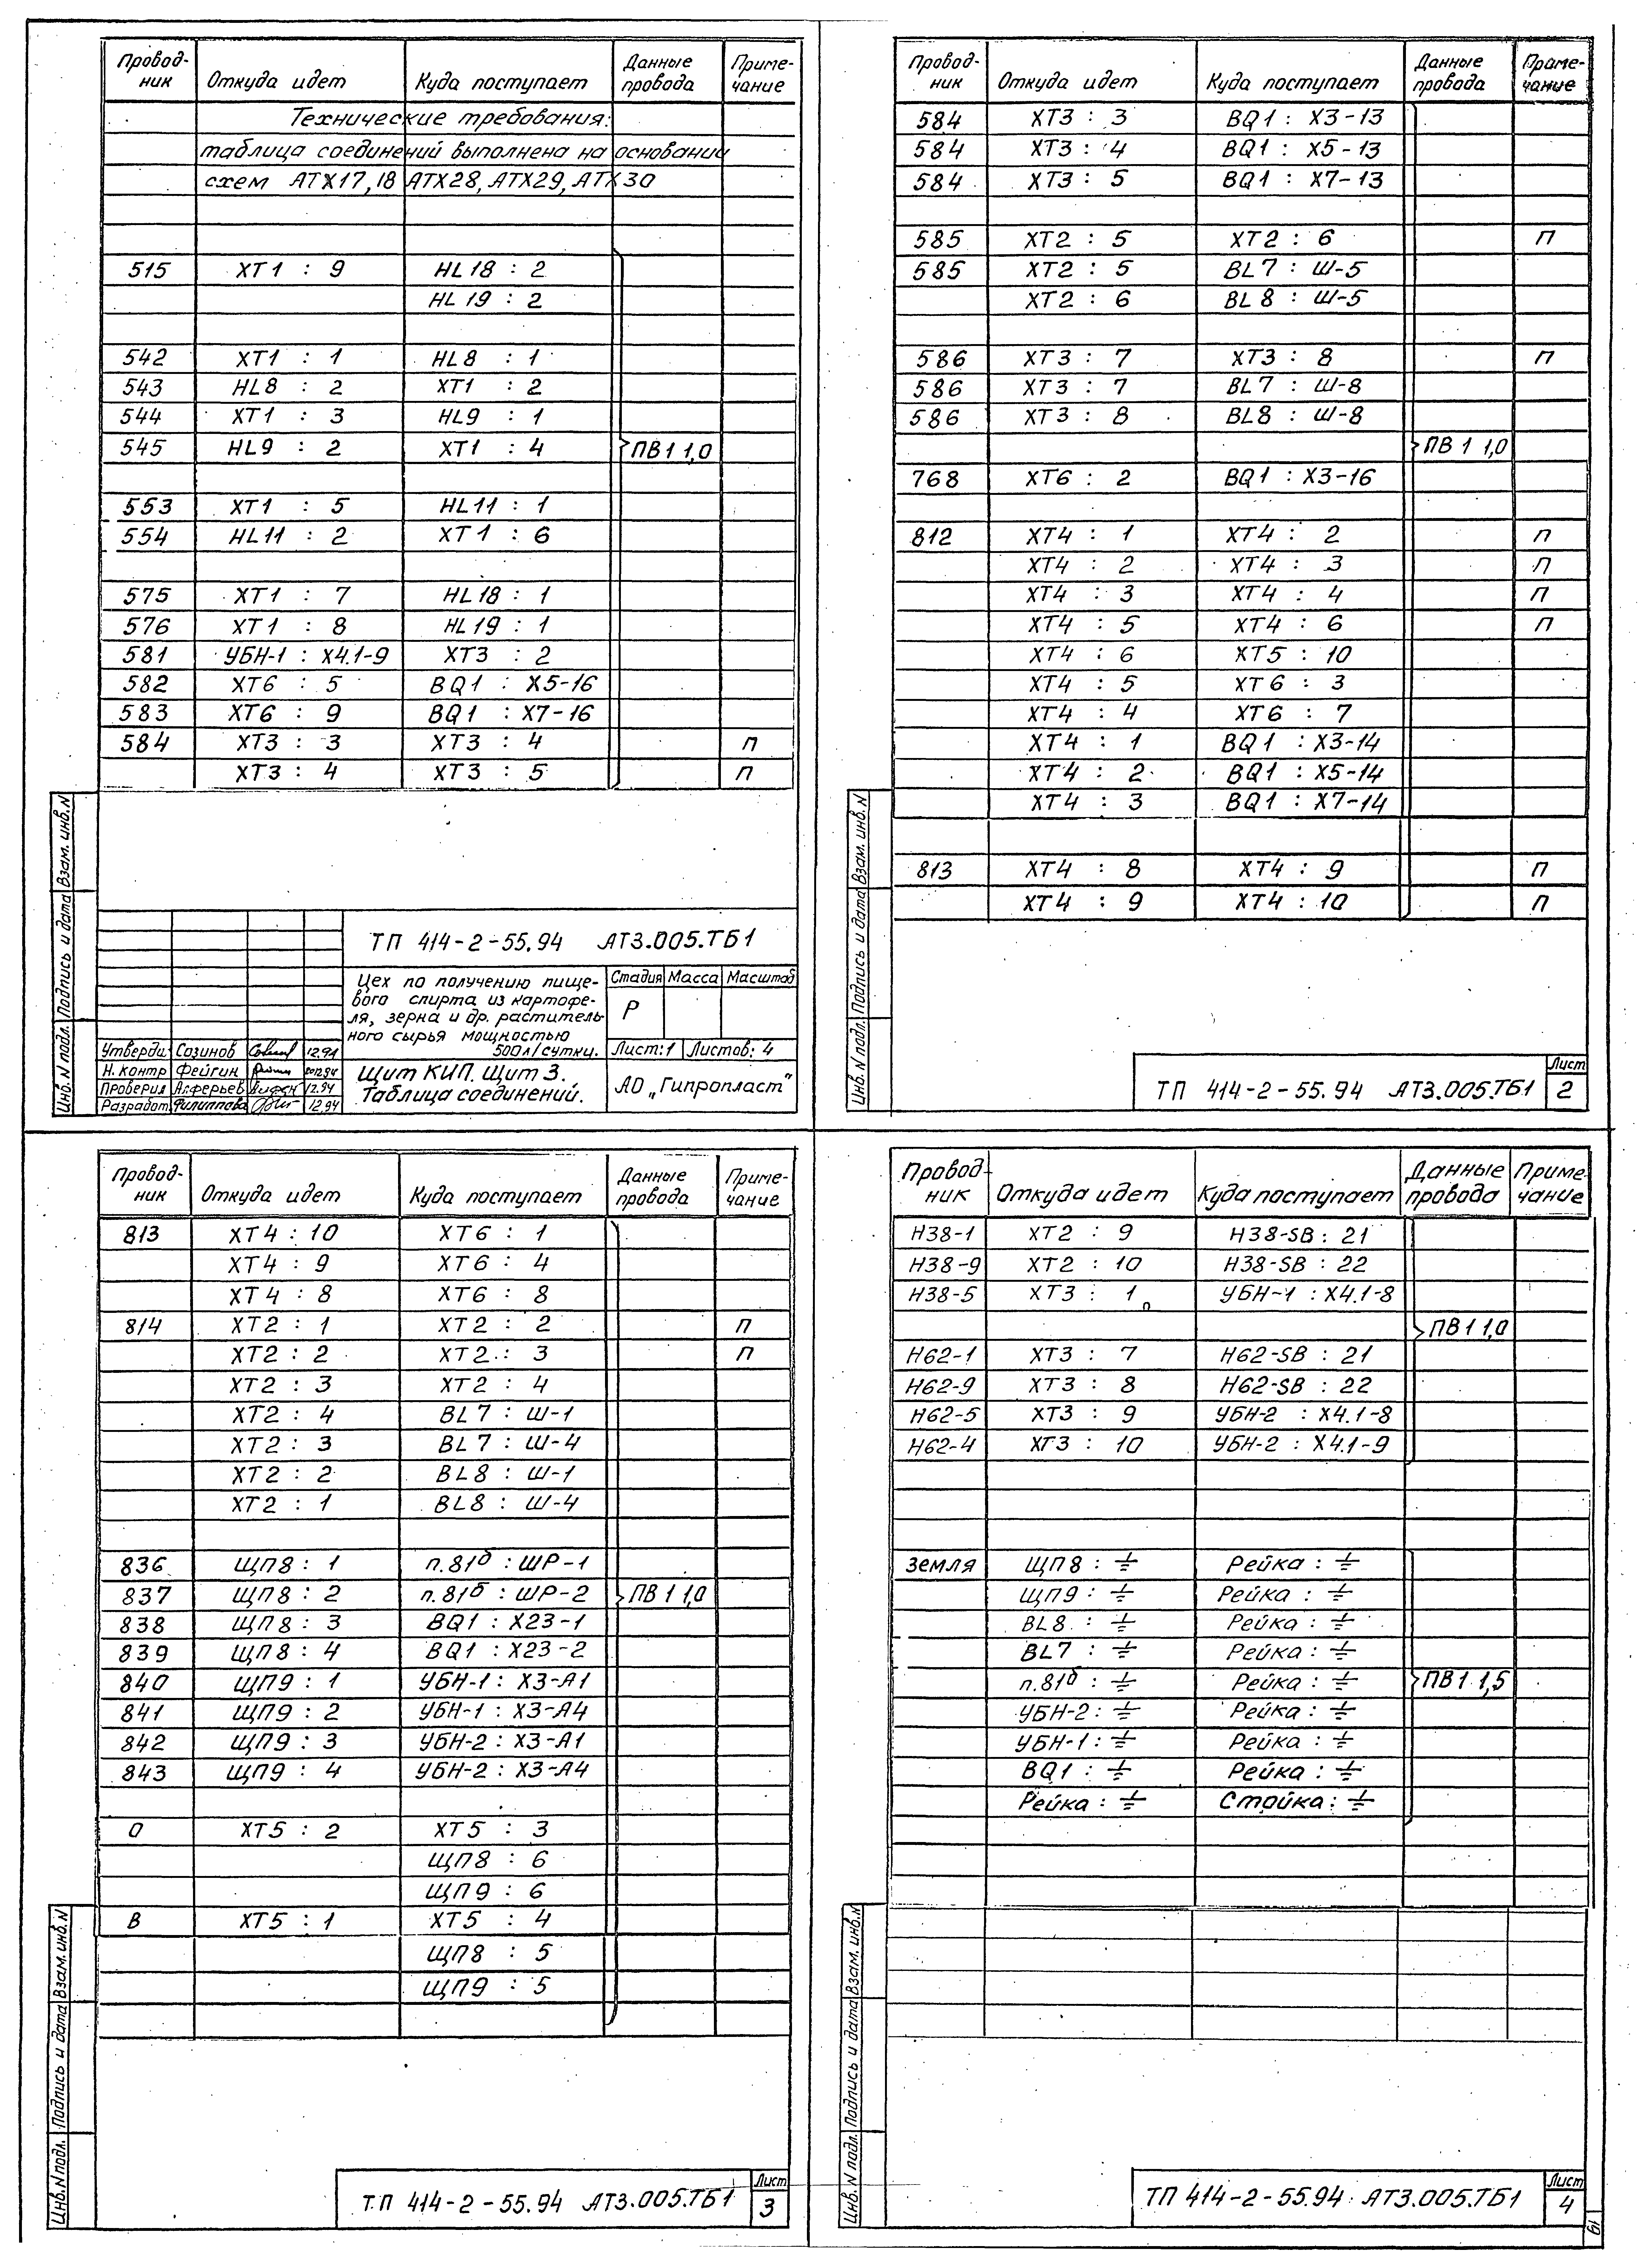 Провод-ник Откуда идет Куда поступает Данные провода Приме-чание
Технические требования:
таблица соединений выполнена на основании
схем АТХ17,18 АТХ28, АТХ29, АТХ30
515 ХТ1 : 9 HL18 : 2
HL19 : 2
542 ХТ1 : 1 HL8 : 1
543 HL8 : 2 ХТ1 : 2
544 ХТ1 : 3 HL9 : 1
545 HL9 : 2 ХТ1 : 4 ПВ1 1,0
553 ХТ1 : 5 HL11 : 1
554 HL11 : 2 ХТ1 : 6
575 ХТ1 : 7 HL18 : 1
576 ХТ1 : 8 HL19 : 1
581 УБН-1 : Х4.1-9 ХТ3 : 2
582 ХТ6 : 5 BQ1 : Х5-16
583 ХТ6 : 9 BQ1 : Х7-16
584 ХТ3 : 3 ХТ3 : 4 п
ХТ3 : 4 ХТ3 : 5 п
Инв. N подл. Подпись и дата Взам. инв. N
ТП 414-2-55.94 АТ3.005.ТБ1
Цех по получению пище-
вого спирта из картофе-
ля, зерна и др. раститель-
ного сырья мощностью
500л/сутки.
Стадия Масса Масштаб
Р
Лист:1 Листов: 4
Утверди. Созинов 12.94
Н. контр Фейгин 12.94
Проверил Алферьев 12.94
Разработ. Филиппова 12.94
Щит КИП. Щит 3.
Таблица соединений.
АО „Гипропласт"
Провод-ник Откуда идет Куда поступает Данные провода Приме-чание
584 ХТ3 : 3 BQ1 : Х3-13
584 ХТ3 : 4 BQ1 : Х5-13
584 ХТ3 : 5 BQ1 : Х7-13
585 ХТ2 : 5 ХТ2 : 6 п
585 ХТ2 : 5 BL7 : Ш-5
ХТ2 : 6 BL8 : Ш-5
586 ХТ3 : 7 ХТ3 : 8 п
586 ХТ3 : 7 BL7 : Ш-8
586 ХТ3 : 8 BL8 : Ш-8
ПВ1 1,0
768 ХТ6 : 2 BQ1 : Х3-16
812 ХТ4 : 1 ХТ4 : 2 п
ХТ4 : 2 ХТ4 : 3 п
ХТ4 : 3 ХТ4 : 4 п
ХТ4 : 5 ХТ4 : 6 п
ХТ4 : 6 ХТ5 : 10
ХТ4 : 5 ХТ6 : 3
ХТ4 : 4 ХТ6 : 7
ХТ4 : 1 BQ1 : Х3-14
ХТ4 : 2 BQ1 : Х5-14
ХТ4 : 3 BQ1 : Х7-14
813 ХТ4 : 8 ХТ4 : 9 п
ХТ4 : 9 ХТ4 : 10 п
Инв. N подл. Подпись и дата Взам. инв. N
ТП 414-2-55.94 АТ3.005.ТБ1 Лист 2
Провод-ник Откуда идет Куда поступает Данные провода Приме-чание
813 ХТ4 : 10 ХТ6 : 1
ХТ4 : 9 ХТ6 : 4
ХТ4 : 8 ХТ6 : 8
814 ХТ2 : 1 ХТ2 : 2 п
ХТ2 : 2 ХТ2 : 3 п
ХТ2 : 3 ХТ2 : 4
ХТ2 : 4 BL7 : Ш-1
ХТ2 : 3 BL7 : Ш-4
ХТ2 : 2 BL8 : Ш-1
ХТ2 : 1 BL8 : Ш-4
836 ЩП8 : 1 п.81б : ШР-1
837 ЩП8 : 2 п.81б : ШР-2 ПВ1 1,0
838 ЩП8 : 3 BQ1 : Х23-1
839 ЩП8 : 4 BQ1 : Х23-2
840 ЩП9 : 1 УБН-1 : Х3-А1
841 ЩП9 : 2 УБН-1 : Х3-А4
842 ЩП9 : 3 УБН-2 : Х3-А1
843 ЩП9 : 4 УБН-2 : Х3-А4
0 ХТ5 : 2 ХТ5 : 3
ЩП8 : 6
ЩП9 : 6
В ХТ5 : 1 ХТ5 : 4
ЩП8 : 5
ЩП9 : 5
Инв. N подл. Подпись и дата Взам. инв. N
ТП 414-2-55.94 АТ3.005.ТБ1 Лист 3
Провод-ник Откуда идет Куда поступает Данные провода Приме-чание
Н38-1 ХТ2 : 9 Н38-SB : 21
Н38-9 ХТ2 : 10 Н38-SB : 22
Н38-5 ХТ3 : 1 п УБН-1 : Х4.1-8
ПВ1 1,0
Н62-1 ХТ3 : 7 Н62-SB : 21
Н62-9 ХТ3 : 8 Н62-SB : 22
Н62-5 ХТ3 : 9 УБН-2 : Х4.1-8
Н62-4 ХТ3 : 10 УБН-2 : Х4.1-9
земля ЩП8 : ⏚ Рейка : ⏚
ЩП9 : ⏚ Рейка : ⏚
BL8 : ⏚ Рейка : ⏚
BL7 : ⏚ Рейка : ⏚
п.81б : ⏚ Рейка : ⏚ ПВ1 1,5
УБН-2 : ⏚ Рейка : ⏚
УБН-1 : ⏚ Рейка : ⏚
BQ1 : ⏚ Рейка : ⏚
Рейка : ⏚ Стойка : ⏚
Инв. N подл. Подпись и дата Взам. инв. N
ТП 414-2-55.94 АТ3.005.ТБ1 Лист 4